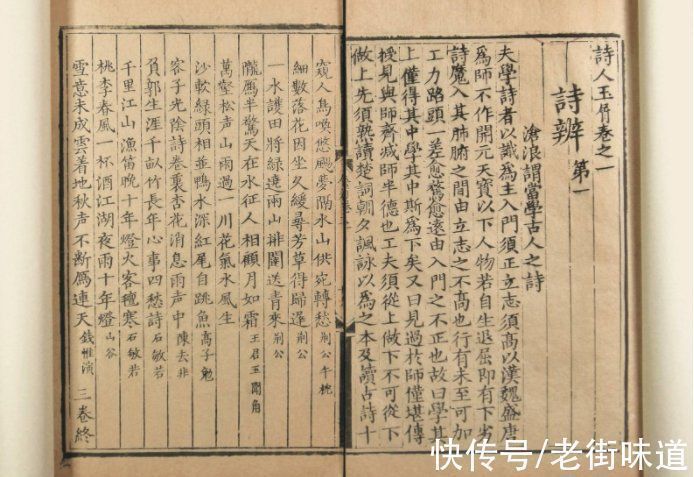 詩人玉屑卷之一
詩辨第一
滄浪謂當學古人之詩
夫學詩者以識爲主入門須正立志須高以漢魏盛唐
爲師不作開元天寶以下人物若自生退屈即有下劣
詩魔入其肺腑之間由立志之不高也行有未至可加
工力路頭一差愈騖愈遠由入門之不正也故曰學其
上僅得其中學其中斯爲下矣又曰見過於師僅堪傳
授見與師齊減師半德也工夫須從上做下不可從下
做上先須熟讀楚詞朝夕諷詠以爲之本及讀古詩十
窺人鳥喚悠颺夢隔水山供宛轉愁荆公午枕
細數落花因坐久緩尋芳草得歸遲荆公
一水護田將綠遶兩山排闥送青來荆公
隴鴈半驚天在水征人相顧月如霜王君玉聞角
萬壑松声山雨過一川花氣水風生
沙軟綠頭相並鴨水深紅尾自跳魚高子勉
客子光陰詩卷裏杏花消息雨声中陳去非
負郭生涯千畝竹長年心事四愁詩石敏若
千里江山漁笛晚十年燈火客氊寒石敏若
桃李春風一杯酒江湖夜雨十年燈山谷
雪意未成雲著地秋声不斷鴈連天錢惟演三卷終
快传号/老街味道